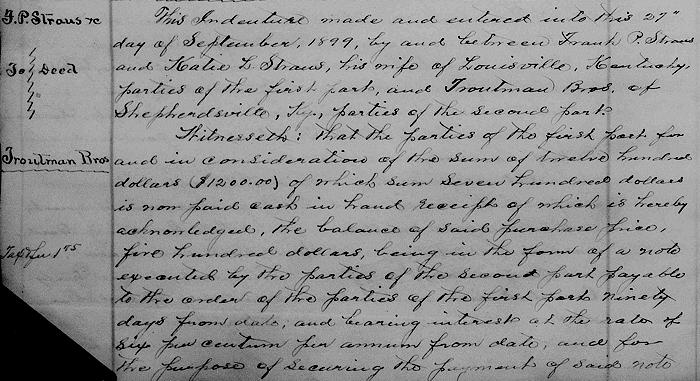 F. P. Straus &c
To } Deed
Troutman Bros
Tax Fee 1 75
This Indenture made and entered into this 27"
day of September, 1899, by and between Frank P. Straus
and Katie L. Straus, his wife of Louisville, Kentucky,
parties of the first part, and Troutman Bros. of
Shepherdsville, Ky., parties of the second part.
Witnesseth: That the parties of the first part for
and in consideration of the sum of twelve hundred
dollars ($1200.00) of which sum seven hundred dollars
is now paid cash in hand receipt of which is hereby
acknowledged, the balance of said purchase price,
five hundred dollars, being in the form of a note
executed by the parties of the second part payable
to the order of the parties of the first part ninety
days from date, and bearing interest at the rate of
six per centum per annum from date, and for
the purpose of securing the payment of said note